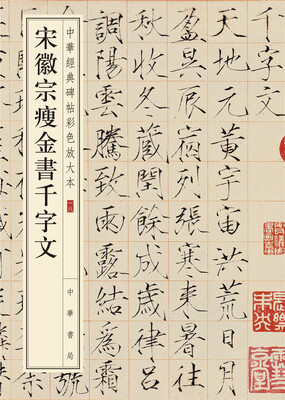 千字文
天地元黃宇宙洪荒日月
盈昃辰宿列張寒來暑往
秋收冬藏閏餘成歲律呂
調陽雲騰致雨露結爲霜
號
中華經典碑帖彩色放大本
宋徽宗瘦金書千字文
中華書局